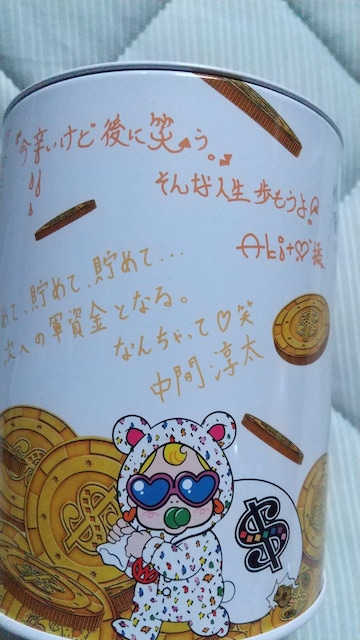 "今辛いけど後に笑う。"
そんな人生歩もうよ
Aki+♡様
めて、貯めて、貯めて…
次への軍資金となる。
なんちゃって♡笑
中間淳太
$